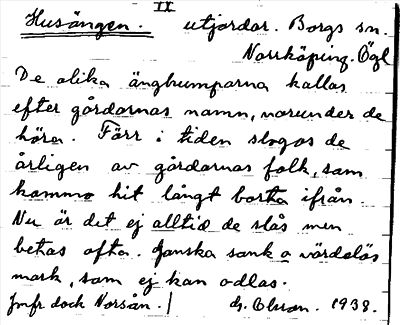 II
Husängen. utjordar. Borgs sn.
Norrköping. Ögl
De olika ängbumparna kallas
efter gårdarnas namn, varunder de
höra. Förr i tiden slogos de
årligen av gårdarnas folk, som
kommo hit långt borta ifrån
Nu är det ej alltid de slås men
betas ofta. Ganska sank o värdelös
mark, som ej kan odlas.
Jmfr dock Norsån. G. Olsson. 1938.